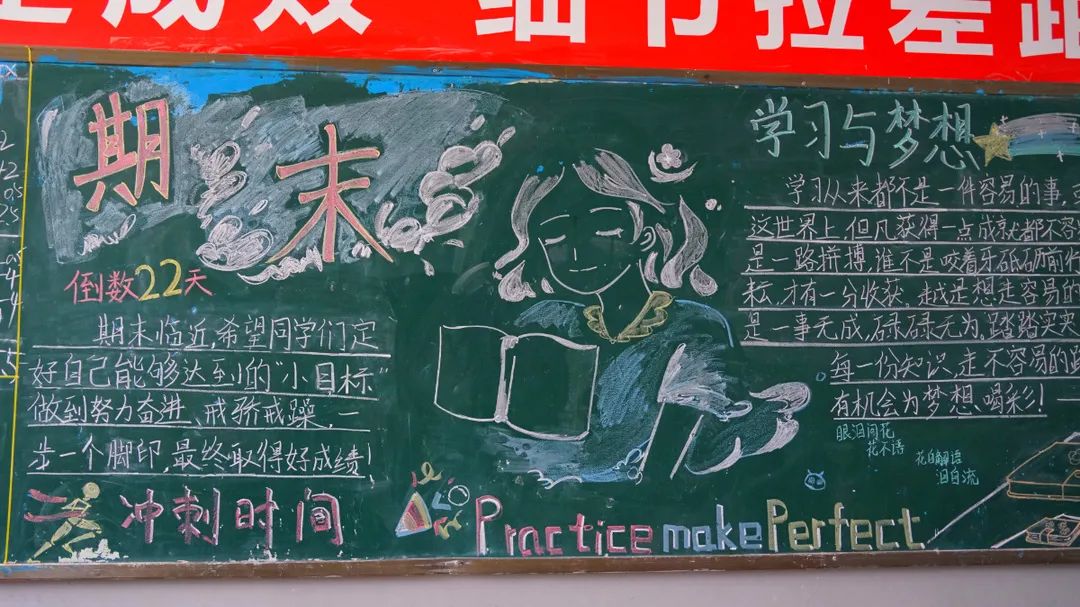 成效 细节拉差距
期末
倒数22天
期末临近,希望同学们定
好自己能够达到的“小目标”
做到努力奋进、戒骄戒躁,一
步一个脚印,最终取得好成绩!
冲刺时间
Practice make Perfect
学习与梦想
学习从来都不是一件容易的事,
这世界上,但凡获得一点成就都不容
是一路拼搏,谁不是咬着牙砥砺前行
耘,才有一分收获。越是想走容易的
是一事无成,碌碌无为。踏踏实实
每一份知识,走不容易的路
有机会为梦想、喝彩!
眼泪问花
花不语
花自解语
泪自流